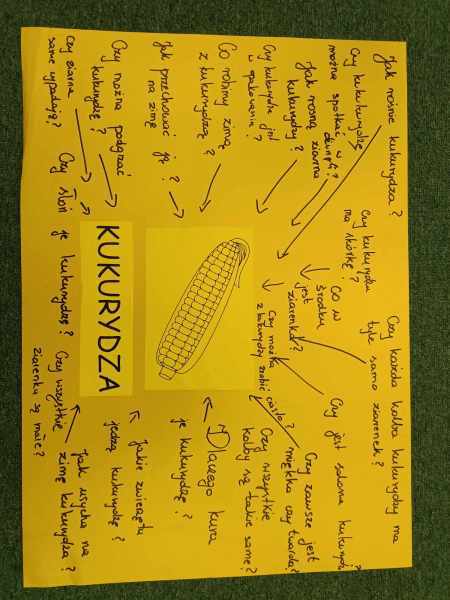 Jak rośnie kukurydza ?
Czy kukurydzę
można spotkać w
dżungli ?
Jak rosną ziarna
kukurydzy ?
Czy kukurydza jest
w opakowaniu ?
Co robimy zimą
z kukurydzą ?
Jak przechować ją ?
na zimę
Czy można podgrzać
kukurydzę ?
Czy ziarna
same wypadają ?
Czy słoń je kukurydzę ?
Czy kukurydza
ma skórkę ?
Co w
środku
jest
ziarenka ?
Czy można
z kukurydzy zrobić
ciasto ?
Czy każda kolba kukurydzy ma
tyle samo ziarenek ?
Czy jest solona kukurydza
Czy zawsze jest
miękka czy twarda ?
Czy wszystkie
kolby są takie same ?
Dlaczego kura
je kukurydzę ?
Jakie zwierzęta
jedzą kukurydzę ?
Czy wszystkie
ziarenka są małe ?
Jak usycha na
zimę kukurydza ?
KUKURYDZA